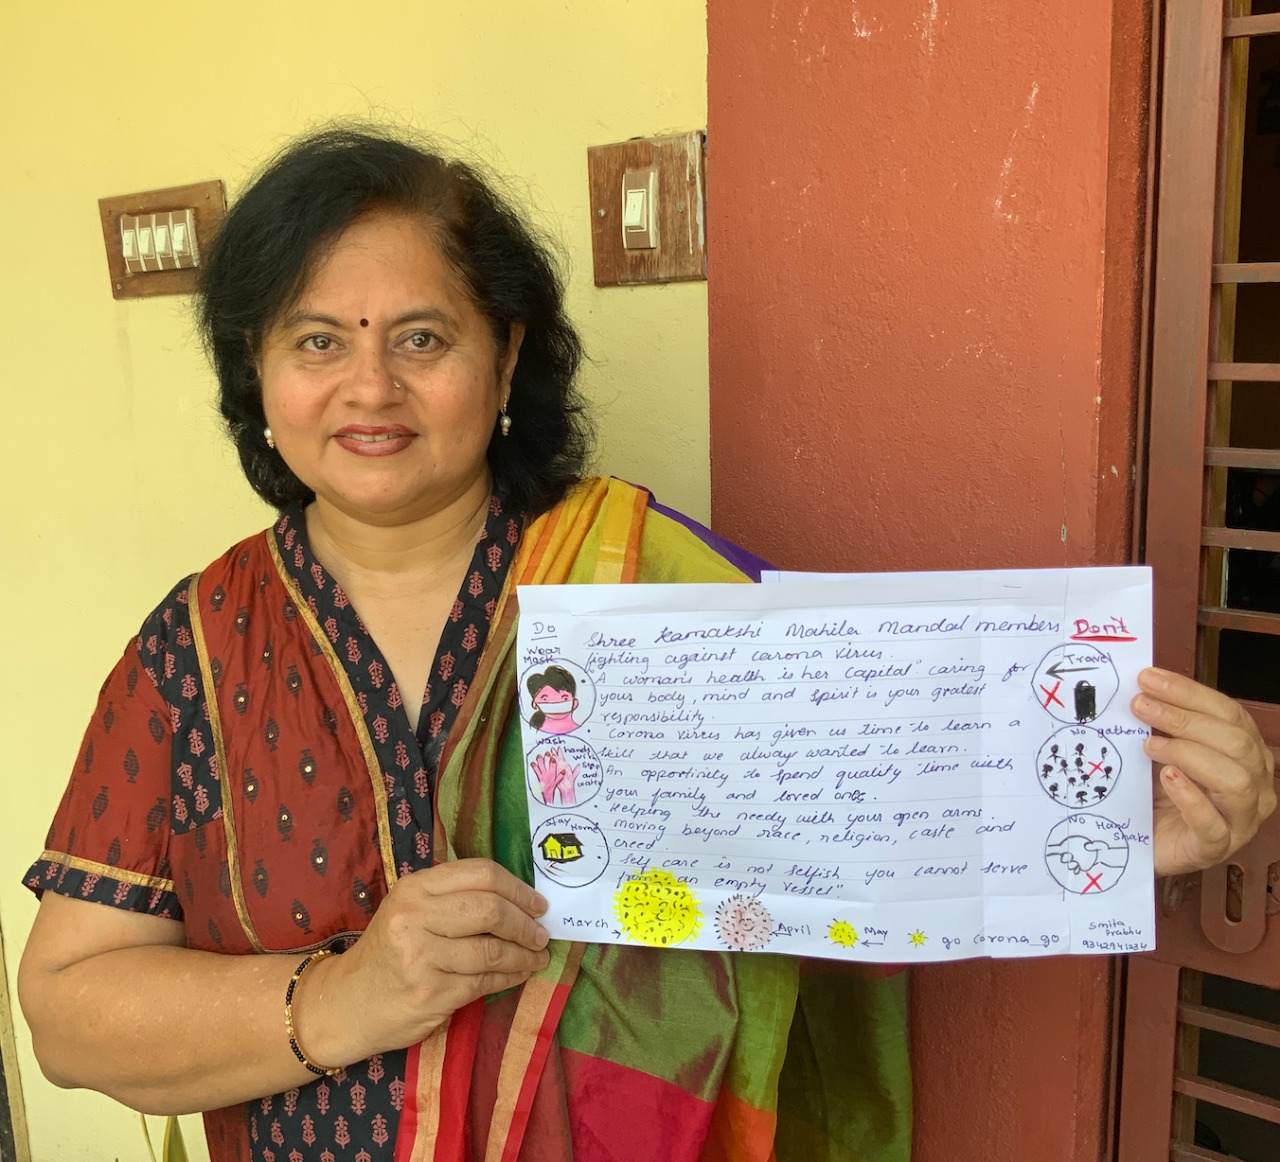 Do
Wear
Mask
wash
hands
with
soap
and
water
Stay Home
Shree Kamakshi Mahila Mandal members
fighting against carona virus.
"A woman's health is her capital" caring for
your body, mind and spirit is your gratest
responsibility.
• Corona virus has given us time to learn a
skill that we alway wanted to learn.
• An opportinity to spend quality time with
your family and loved ones.
• Helping the needy with your open arms
moving beyond race, religion, caste and
creed.
• "Self care is not selfish you cannot serve
from an empty vessel"
Don't
Travel
No gathering
No Hand
Shake
March
April
May
go corona_go
Smita
Prabhu
9342941234